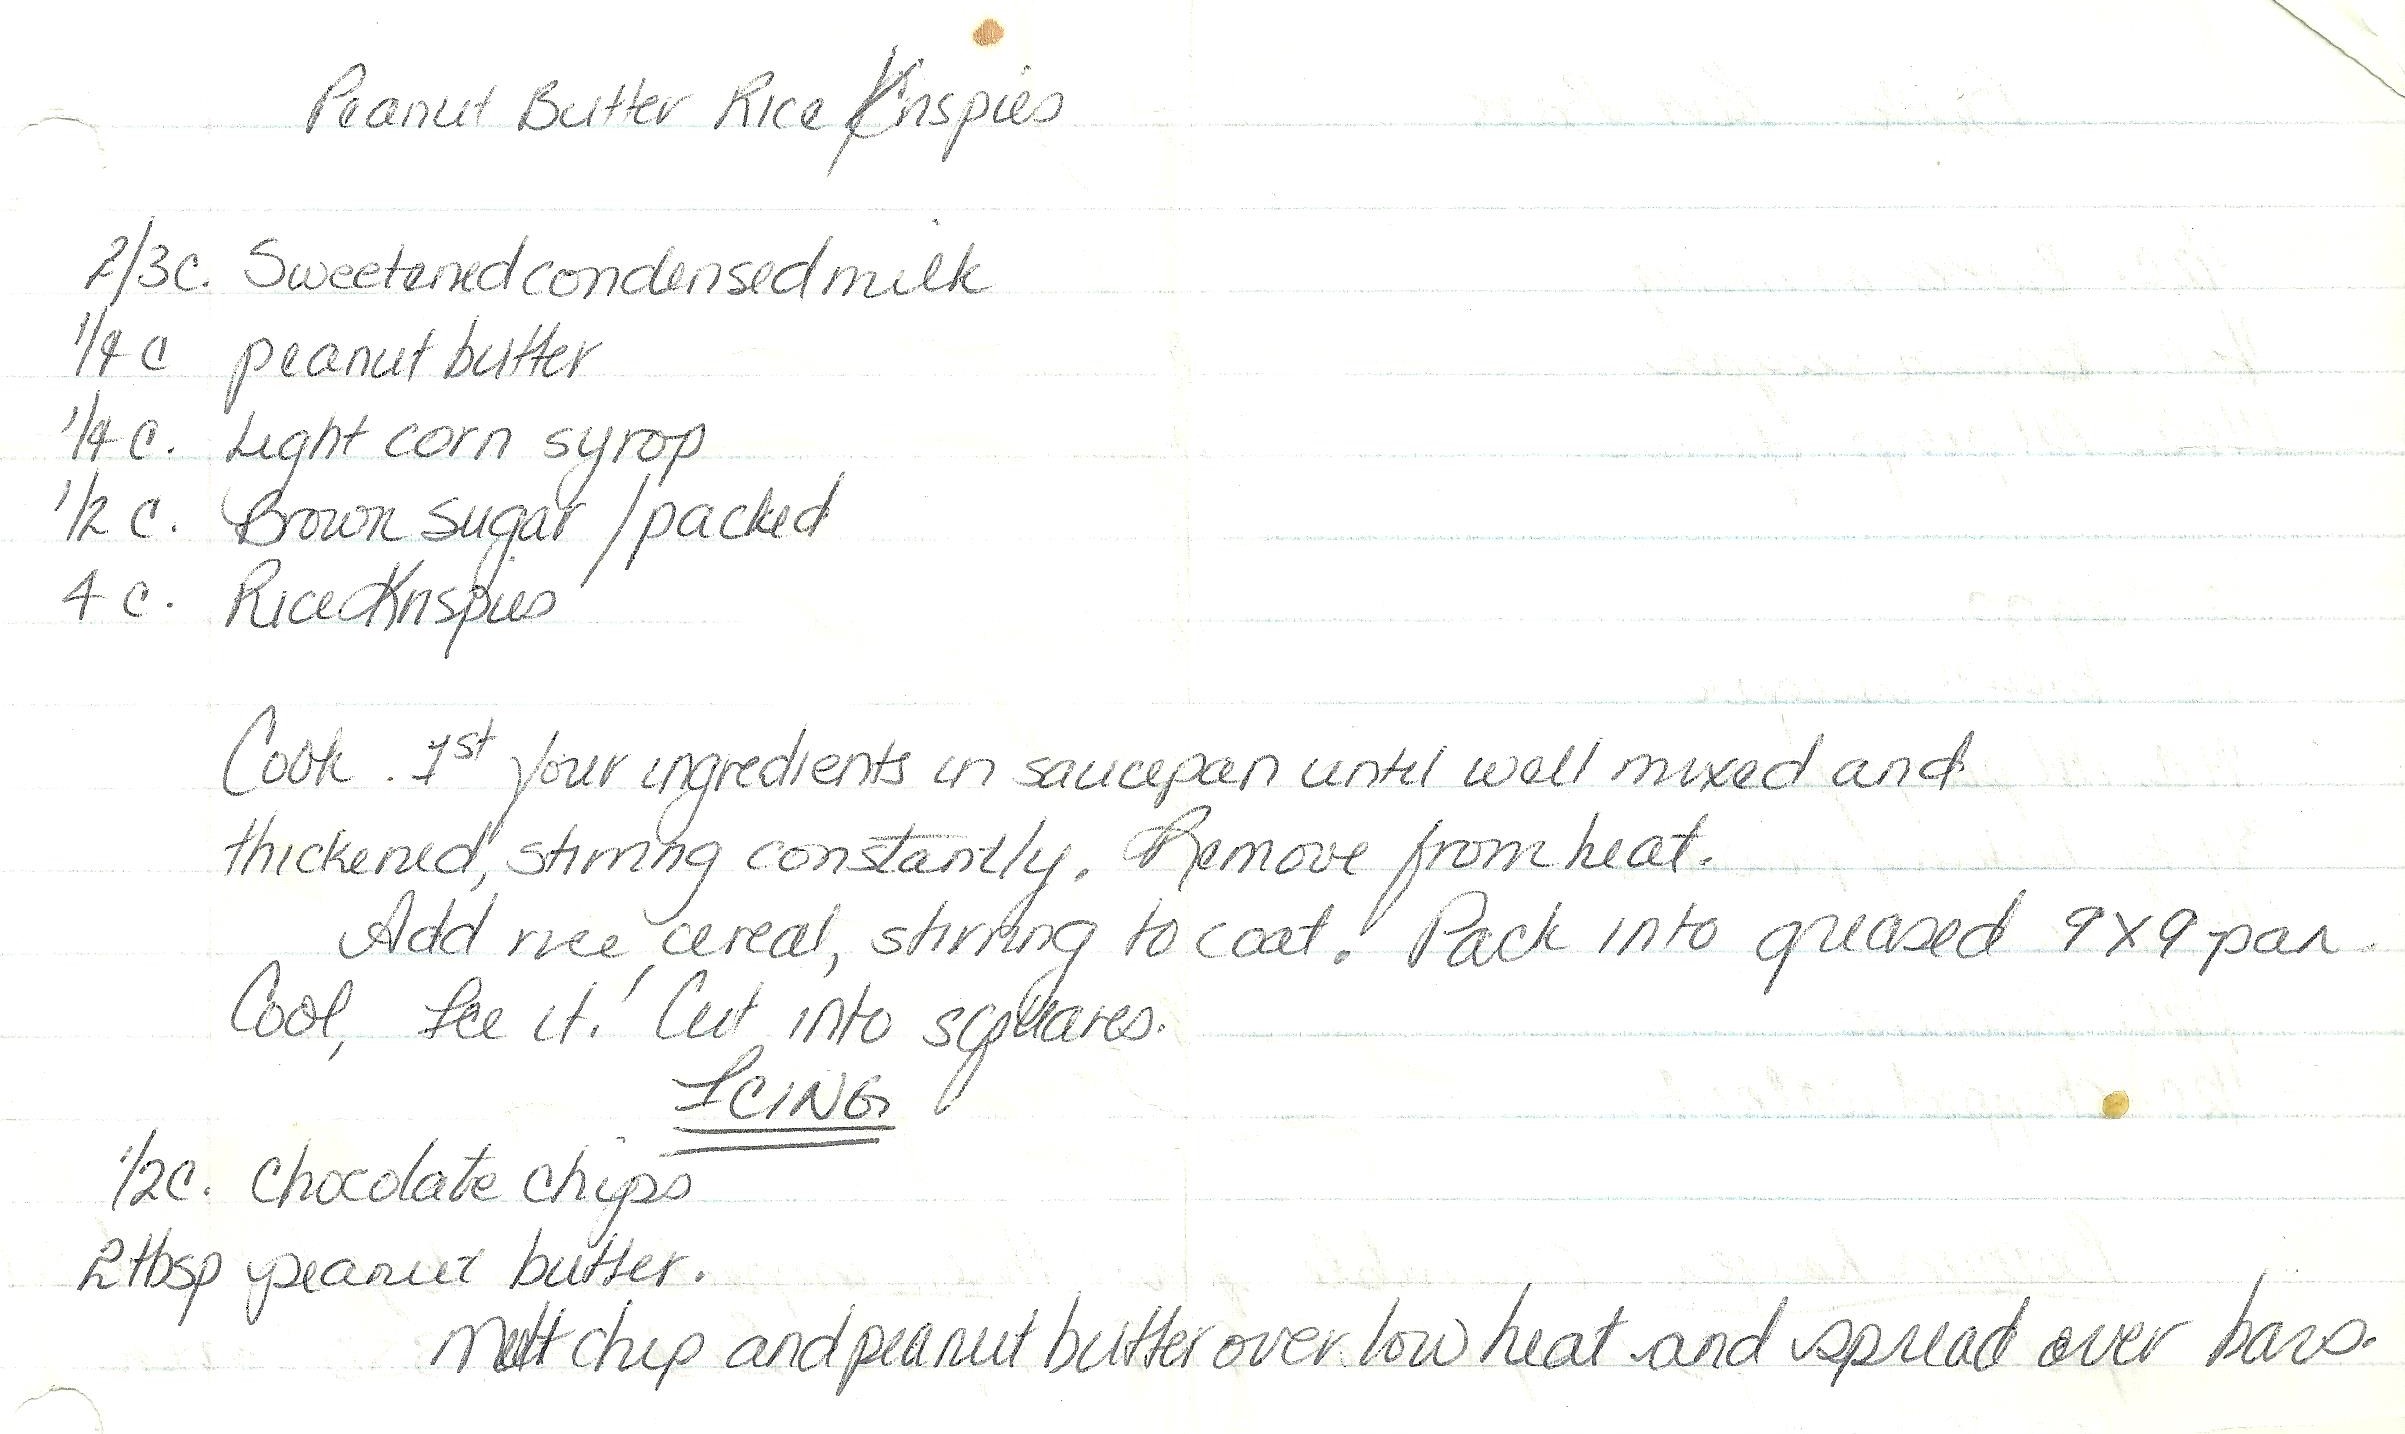 Peanut Butter Rice Krispies
2/3 c. Sweetened condensed milk
1/4 c peanut butter
1/4 c. Light corn syrop
1/2 c. Brown sugar / packed
4 c. Rice Krispies
Cook. 1st your ingredients in saucepan until well mixed and
thickened, stirring constantly. Remove from heat.
Add rice cereal, stirring to coat. Pack into greased 9x9 pan.
Cool, Ice it. Cut into squares.
ICING
1/2 c. Chocolate chips
2 tbsp peanut butter.
Melt chip and peanut butter over low heat and spread over bars.